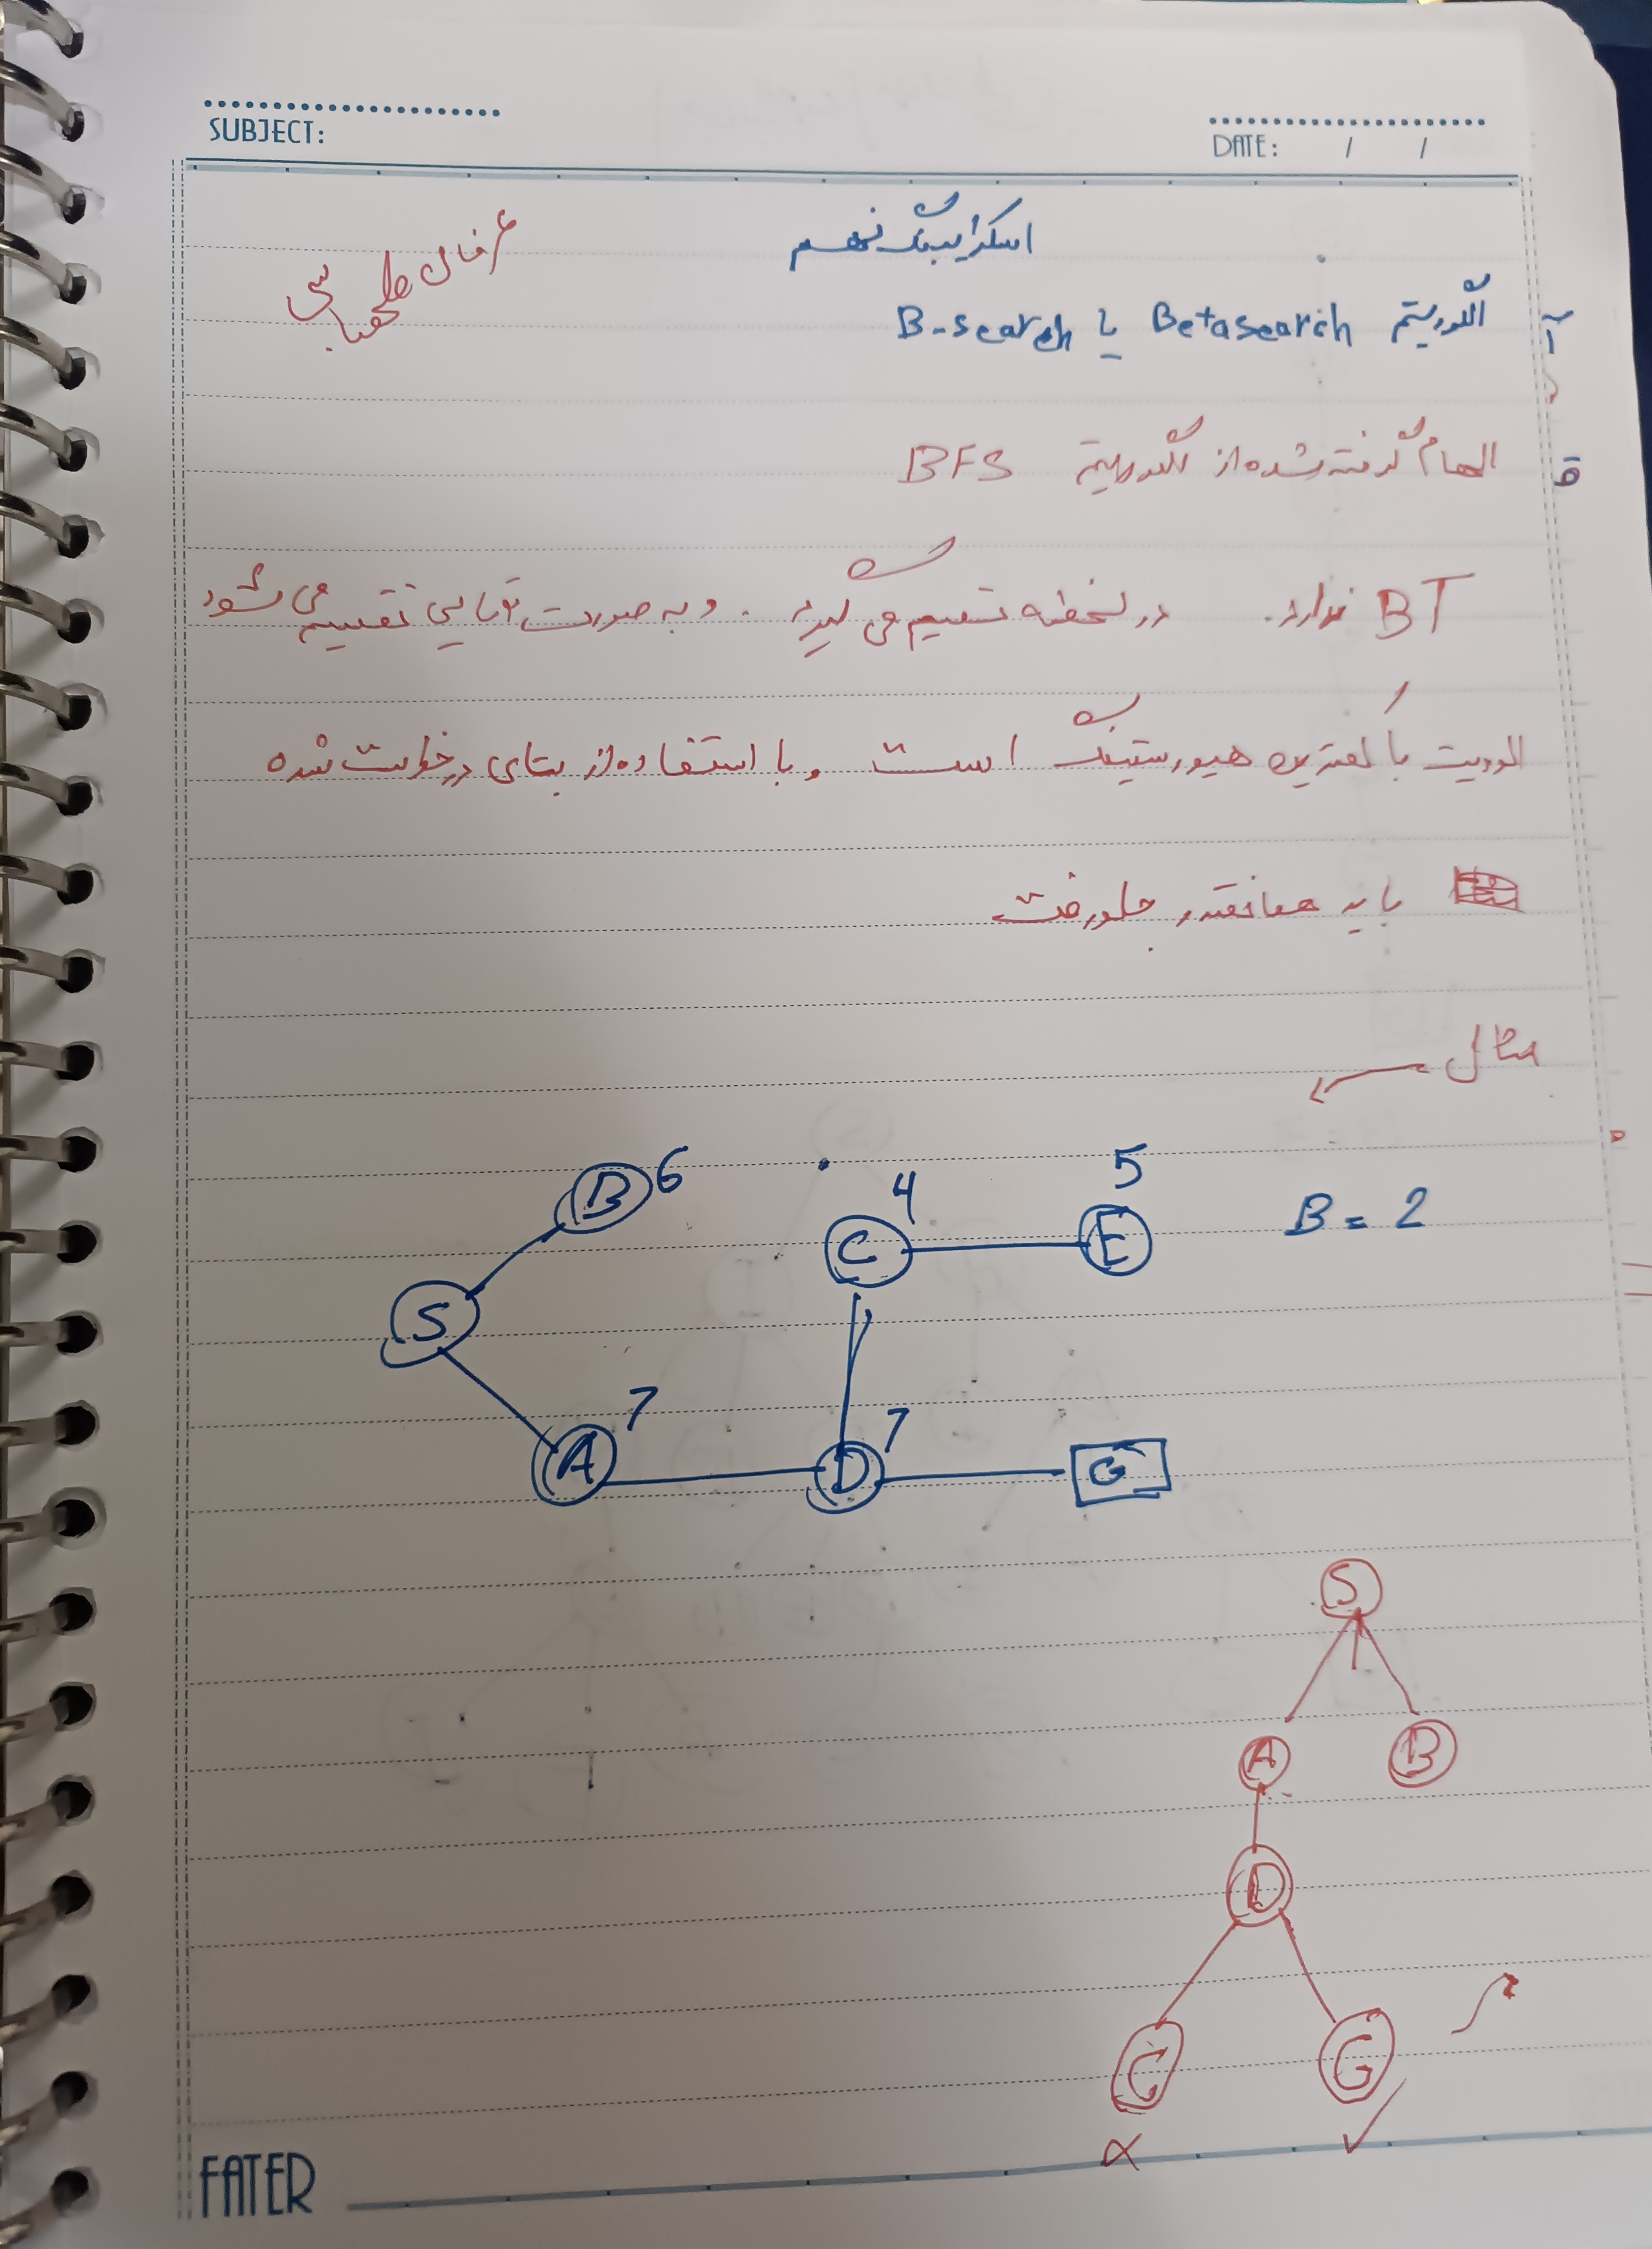 SUBJECT:
DATE: / /
اسکرایبینگ نهم
عرفان
الگوریتم Betasearch یا B-search
الهام گرفته شده از الگوریتم BFS
BT ندارد. در لحظه تصمیم می گیرد. و به صورت تقسیم می شود
الویت با کمترین هیورستیک است و با استفاده از بتای درخواست شده
باید همانقدر جلو رفت
مثال
B 6
C 4
E 5
B = 2
S
A 7
D 7
G
S
A B
D
C G
FATER